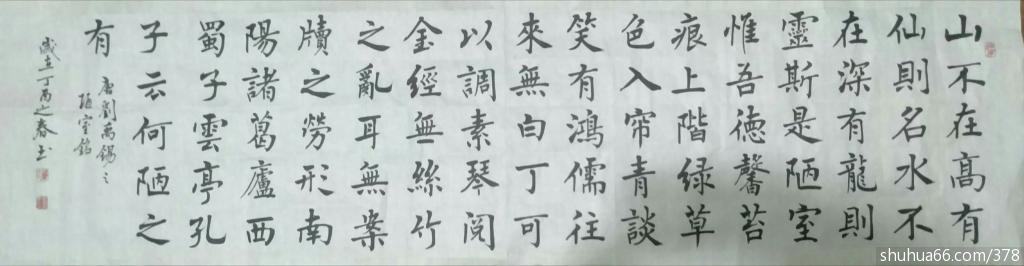 山不在高有
仙則名水不
在深有龍則
靈斯是陋室
惟吾德馨苔
痕上階緑草
色入帘青談
笑有鴻儒往
來無白丁可
以調素琴閱
金經無絲竹
之亂耳無案
牘之勞形南
陽諸葛廬西
蜀子雲亭孔
子云何陋之
有
唐劉禹錫之
陋室銘
歲在丁酉之春书
shuhua66.com/378